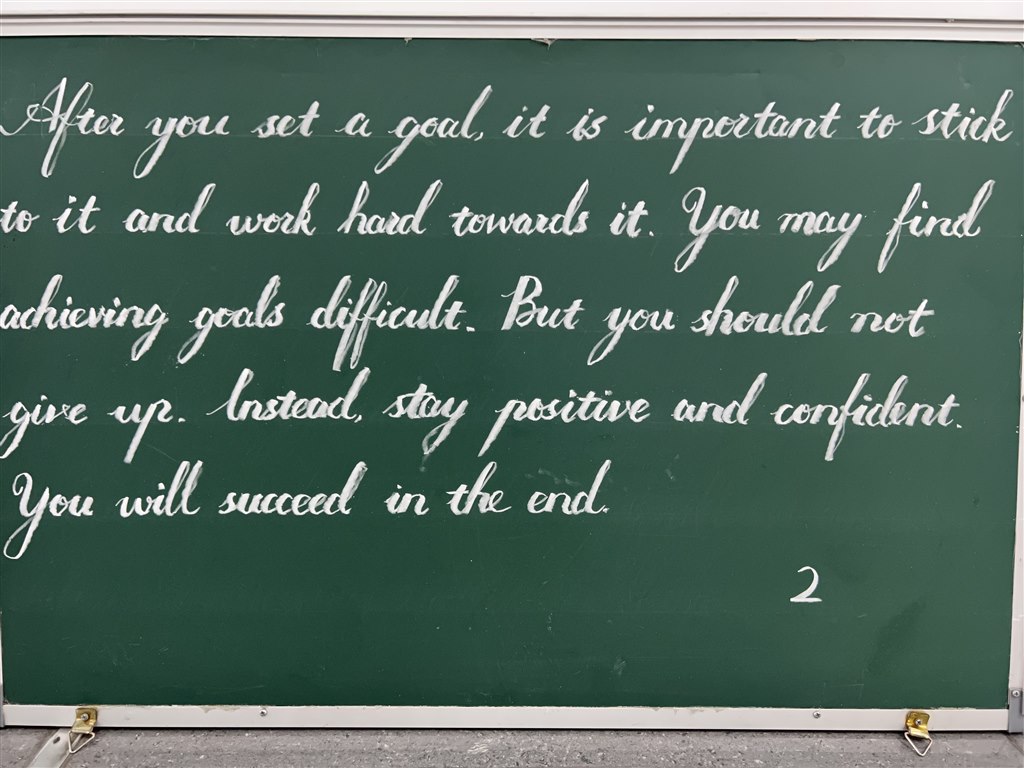 After you set a goal, it is important to stick
to it and work hard towards it. You may find
achieving goals difficult. But you should not
give up. Instead, stay positive and confident.
You will succeed in the end.
2